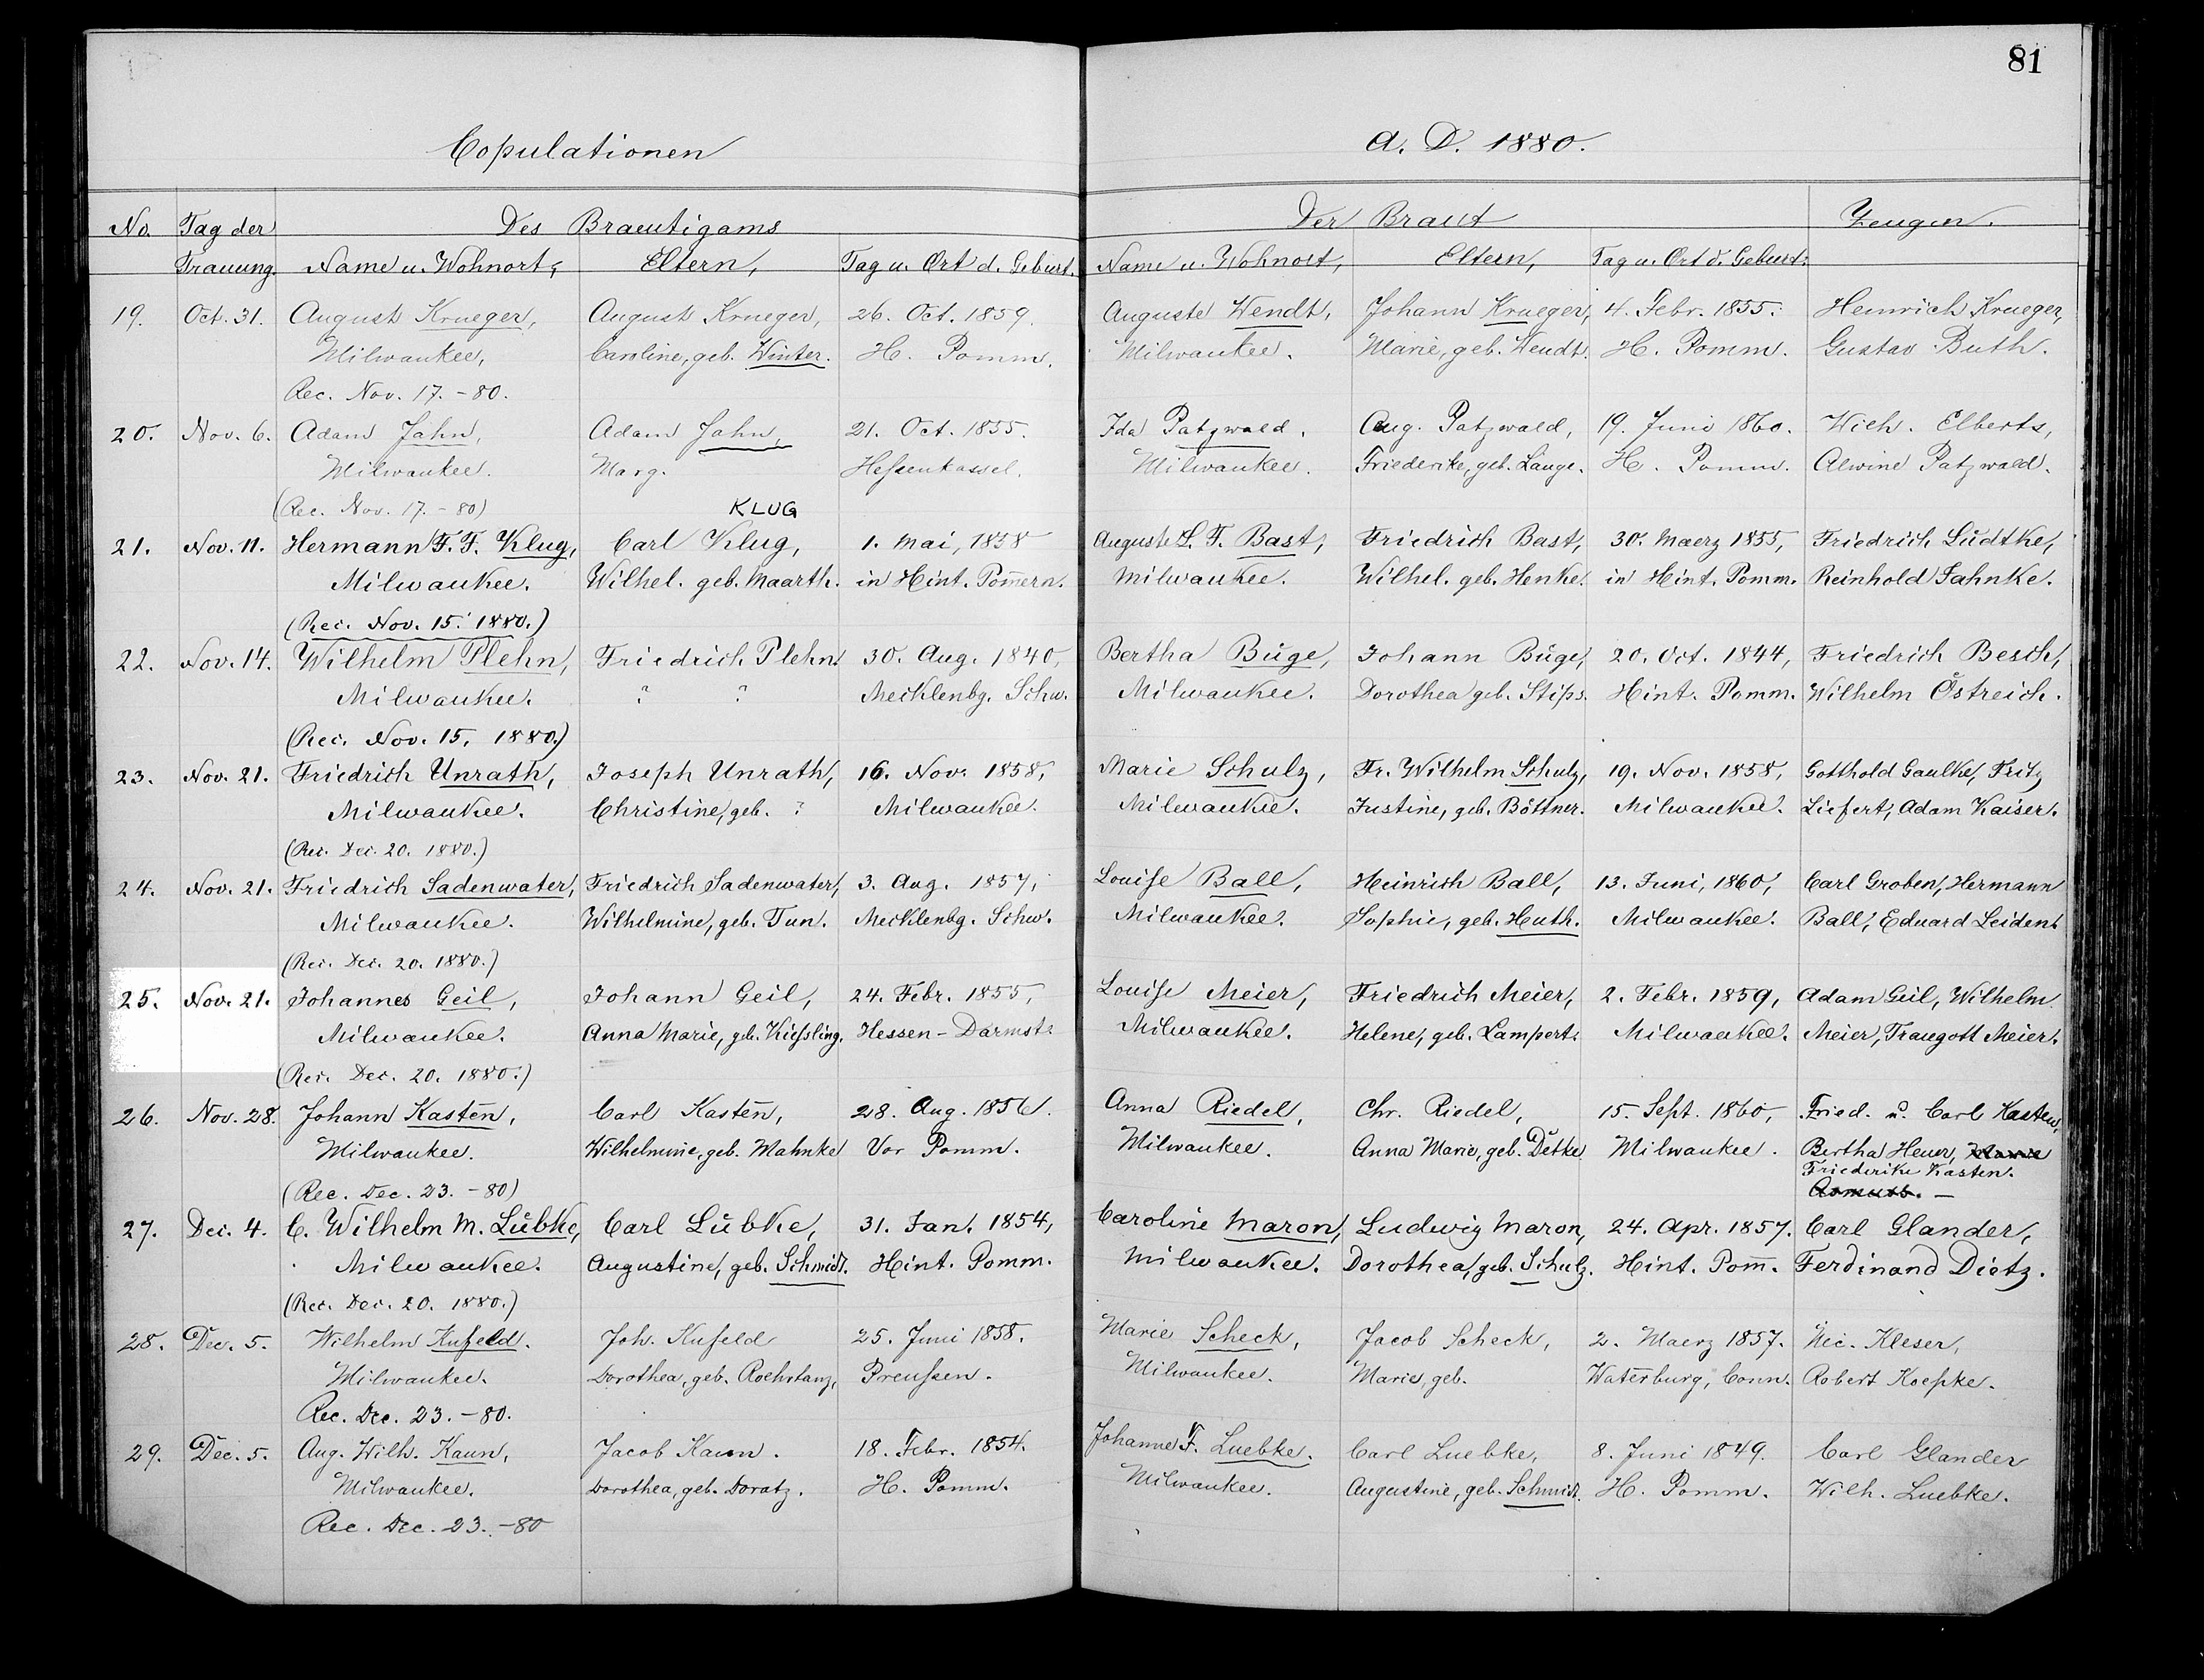 81
Copulationen
A. D. 1880.
No. Tag der Des Braeutigams Der Braut Zeugen.
Trauung. Name u. Wohnort, Eltern, Tag u. Ort d. Geburt. Name u. Wohnort, Eltern, Tag u. Ort d. Geburt.
19. Oct. 31. August Krueger, August Krueger, 26. Oct. 1859. Auguste Wendt, Johann Krueger, 4. Febr. 1855. Heinrich Krueger,
Milwaukee, Caroline, geb. Winter. H. Pomm. Milwaukee. Marie, geb. Wendt. H. Pomm. Gustav Buth.
Rec. Nov. 17. - 80.
20. Nov. 6. Adam Jahn, Adam Jahn, 21. Oct. 1855. Ida Patzwald. Aug. Patzwald, 19. Juni 1860. Wilh. Elberts,
Milwaukee. Marg. Heſsenkassel. Milwaukee. Friederike, geb. Lange. H. Pomm. Alwine Patzwald.
(Rec. Nov. 17. - 80) KLUG
21. Nov. 11. Hermann F. F. Klug, Carl Klug, 1. Mai, 1858 Auguste L. F. Bast, Friedrich Bast, 30. Maerz 1855, Friedrich Lüdtke,
Milwaukee. Wilhel. geb. Maarth. in Hint. Pom̄ern. Milwaukee. Wilhel. geb. Henke. in Hint. Pomm. Reinhold Jahnke.
(Rec. Nov. 15. 1880.)
22. Nov. 14. Wilhelm Plehn, Friedrich Plehn. 30. Aug. 1840, Bertha Büge, Johann Büge, 20. Oct. 1844, Friedrich Besch,
Milwaukee. ? ? Mecklenbg. Schw. Milwaukee. Dorothea geb. Stips. Hint. Pomm. Wilhelm Östreich.
(Rec. Nov. 15, 1880.)
23. Nov. 21. Friedrich Unrath, Joseph Unrath, 16. Nov. 1858, Marie Schulz, Fr. Wilhelm Schulz, 19. Nov. 1858, Gotthold Gaulke, Fritz
Milwaukee. Christine, geb. ? Milwaukee. Milwaukee. Justine, geb. Böttner. Milwaukee. Liefert, Adam Kaiser.
(Rec. Dec. 20. 1880.)
24. Nov. 21. Friedrich Sadenwater, Friedrich Sadenwater, 3. Aug. 1857, Louiſe Ball, Heinrich Ball, 13. Juni, 1860, Carl Groben, Hermann
Milwaukee. Wilhelmine, geb. Tun. Mecklenbg. Schw. Milwaukee. Sophie, geb. Huth. Milwaukee. Ball, Eduard Leident
(Rec. Dec. 20. 1880.)
25. Nov. 21. Johannes Geil, Johann Geil, 24. Febr. 1855, Louiſe Meier, Friedrich Meier, 2. Febr. 1859, Adam Geil, Wilhelm
Milwaukee. Anna Marie, geb. Kieſsling. Hessen-Darmst. Milwaukee. Helene, geb. Lampert. Milwaukee. Meier, Traugott Meier.
(Rec. Dec. 20. 1880.)
26. Nov. 28. Johann Kasten, Carl Kasten, 28. Aug. 1856. Anna Riedel, Chr. Riedel, 15. Sept. 1860, Fried. u. Carl Kasten,
Milwaukee. Wilhelmine, geb. Mahnke Vor Pomm. Milwaukee. Anna Marie, geb. Detke Milwaukee. Bertha Heuer,
(Rec. Dec. 23. - 80) Friederike Kasten.
27. Dec. 4. C. Wilhelm M. Lübke, Carl Lübke, 31. Jan. 1854, Caroline Maron, Ludwig Maron, 24. Apr. 1857. Carl Glander,
Milwaukee. Augustine, geb. Schmidt. Hint. Pomm. Milwaukee. Dorothea, geb. Schulz. Hint. Pom̄. Ferdinand Dietz.
(Rec. Dec. 20. 1880.)
28. Dec. 5. Wilhelm Kufeld. Joh. Kufeld 25. Juni 1858. Marie Scheck, Jacob Scheck, 2. Maerz 1857. Nic. Kleser,
Milwaukee. Dorothea, geb. Roehrtanz, Preuſsen. Milwaukee. Marie, geb. Waterburg, Conn. Robert Koepke.
Rec. Dec. 23. - 80.
29. Dec. 5. Aug. Wilh. Kaun, Jacob Kaun. 18. Febr. 1854. Johanne F. Luebke. Carl Luebke, 8. Juni 1849. Carl Glander
Milwaukee. Dorothea, geb. Doratz. H. Pomm. Milwaukee. Augustine, geb. Schmidt. H. Pomm. Wilh. Luebke.
Rec. Dec. 23. - 80